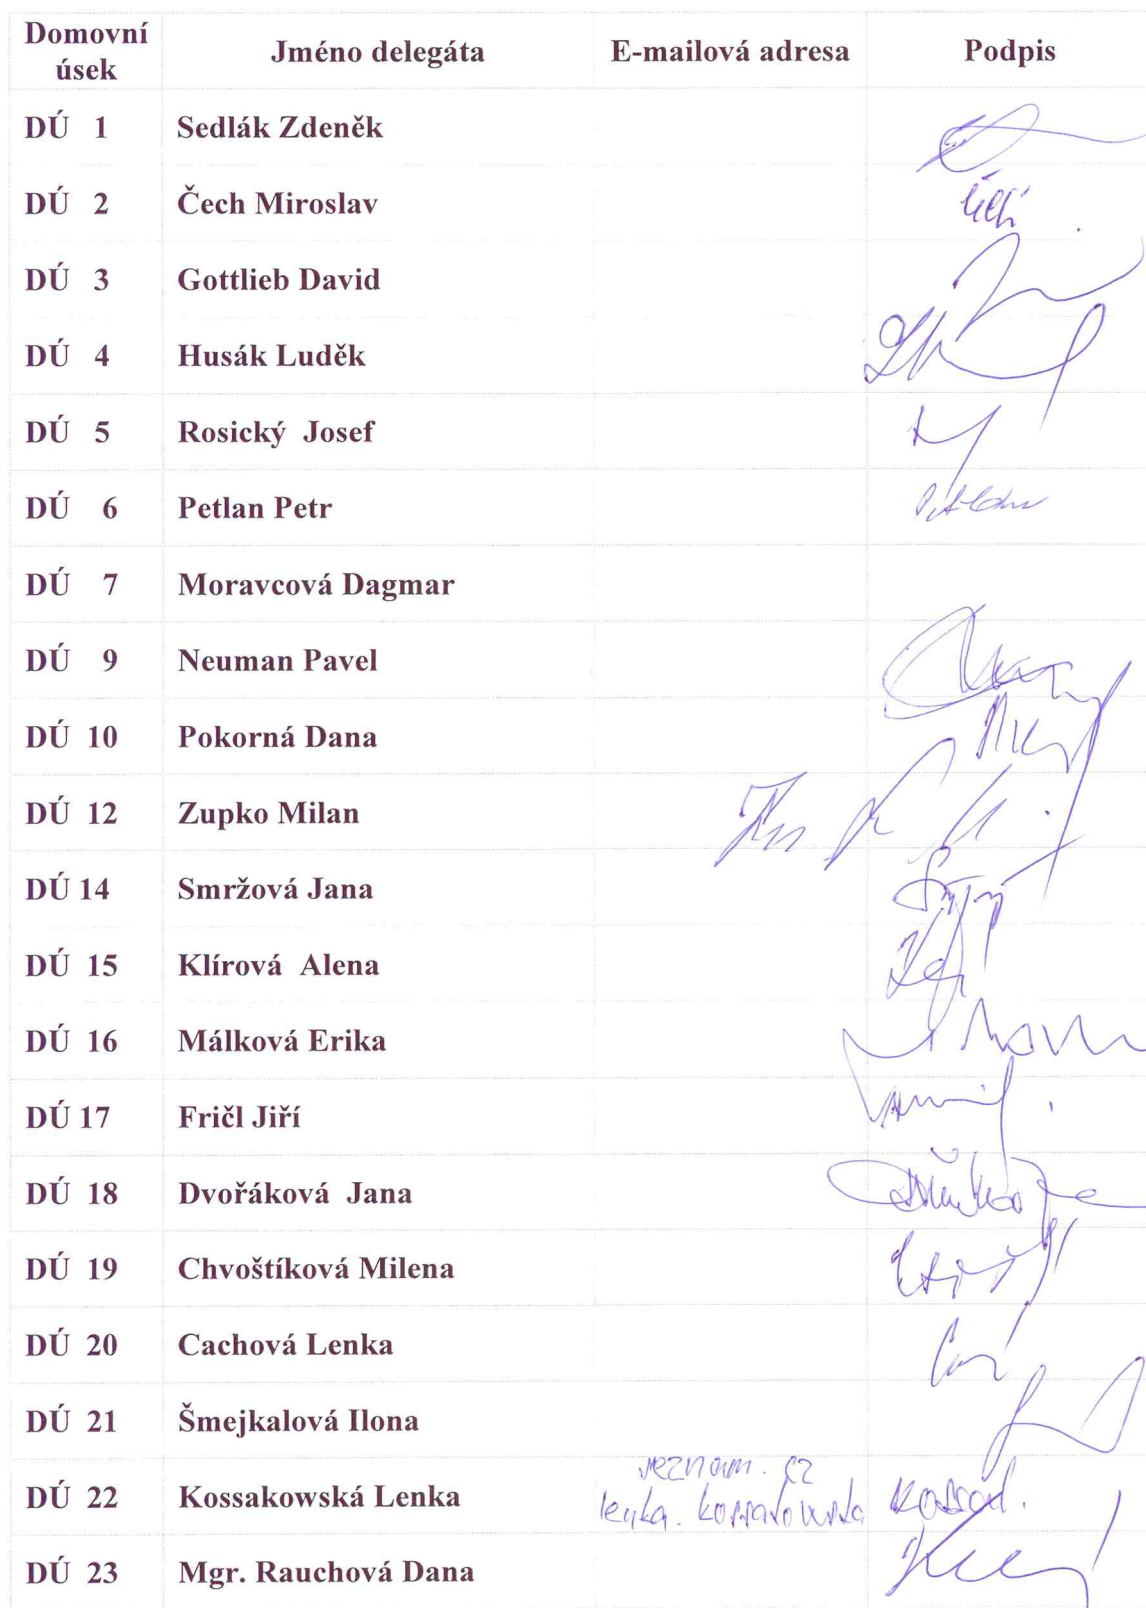 Domovní úsek Jméno delegáta E-mailová adresa Podpis
DÚ 1 Sedlák Zdeněk
DÚ 2 Čech Miroslav
DÚ 3 Gottlieb David
DÚ 4 Husák Luděk
DÚ 5 Rosický Josef
DÚ 6 Petlan Petr
DÚ 7 Moravcová Dagmar
DÚ 9 Neuman Pavel
DÚ 10 Pokorná Dana
DÚ 12 Zupko Milan
DÚ 14 Smržová Jana
DÚ 15 Klírová Alena
DÚ 16 Málková Erika
DÚ 17 Fričl Jiří
DÚ 18 Dvořáková Jana
DÚ 19 Chvoštíková Milena
DÚ 20 Cachová Lenka
DÚ 21 Šmejkalová Ilona
seznam.cz
DÚ 22 Kossakowská Lenka lenka.kossakowska
DÚ 23 Mgr. Rauchová Dana